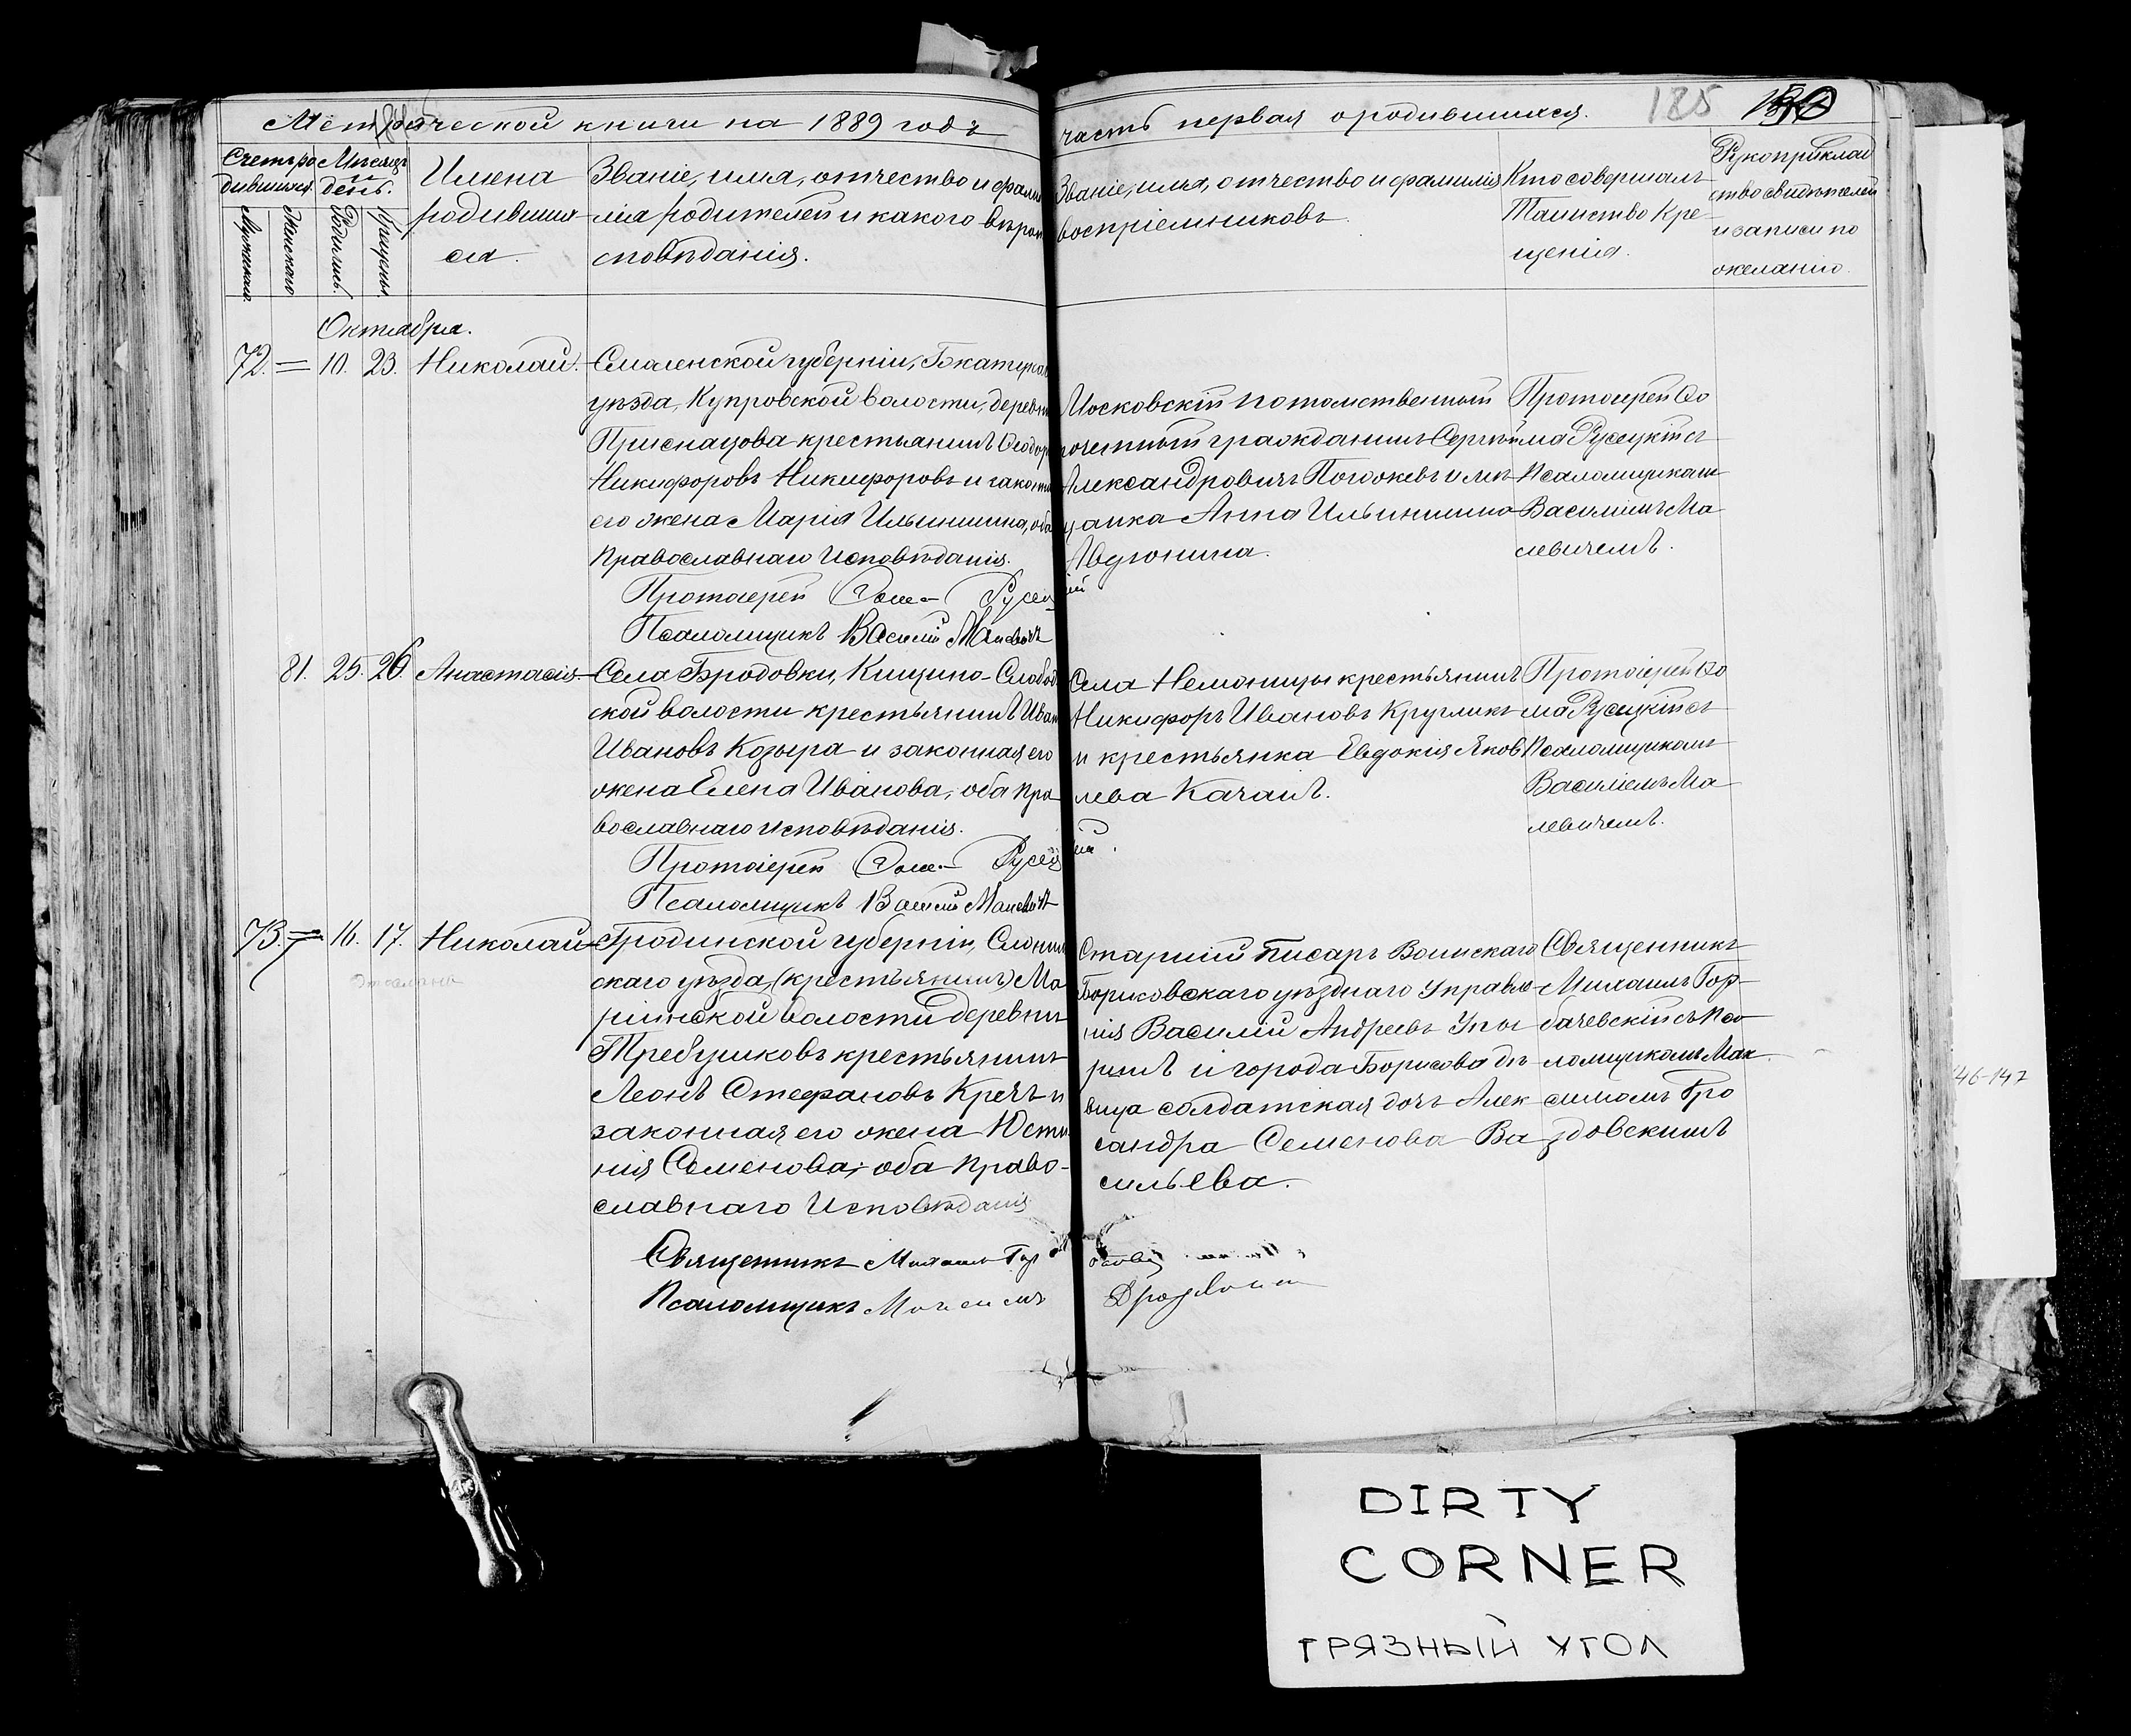 Метрической книги на 1889 годъ
часть первая о родившихся.
185
Счетъ ро
дившихся.
Мѣсяцъ
и
день.
Имена
родивших
ся.
Званіе, имя, отчество и фами
лія родителей и какого вѣрои
сповѣданія.
Званіе, имя, отчество и фамилія
воспріемниковъ.
Кто совершалъ
Таинство Кре-
щенія.
Рукоприклад
ство свидѣтелей
и записи по
желанію.
Мужскаго.
Женскаго
Родились.
Крещены
Октября.
72. = 10. 23. Николай.
Смоленской губерніи,
уѣзда, Купровской волости, деревни
крестьянинъ Ѳеодоръ
Никифоровъ Никифоровъ и законная
его жена Марія Ильинишна, оба
Православнаго Исповѣданія.
Протоіерей Ѳома Русецкій
Псаломщикъ Василій Малевичъ
Московскій потомственный
почетный гражданинъ Сергѣй
Александровичъ и мѣ
щанка Анна Ильинишна
Авдюнина.
Протоіерей Ѳо
ма Русецкій съ
Псаломщикомъ
Василіемъ Ма
левичемъ.
81. 25. 26. Анастасія.
Села Бродовки, Кищино-Слобод
ской волости крестьянинъ Иванъ
Ивановъ Козыра и законная его
жена Елена Иванова, оба Пра
вославнаго исповѣданія.
Протоіерей Ѳома Русецкій.
Псаломщикъ Василій Малевичъ
Села Немоницы крестьянинъ
Никифоръ Ивановъ Кругликъ
и крестьянка Евдокія Яков
лева Качанъ.
Протоіерей Ѳо
ма Русецкій съ
Псаломщикомъ
Василіемъ Ма
левичемъ.
73. = 16. 17. Николай
Гродненской губерніи, Слоним
скаго уѣзда, (крестьянинъ) Ма
ринской волости деревни
Требушковъ крестьянинъ
Леонъ Стефановъ Кречъ и
законная его жена Юсти
нія Семенова, оба Право-
славнаго Исповѣданія
Священникъ Михаилъ
Псаломщикъ
Старшій писарь Воинскаго
Борисовскаго уѣзднаго Управле
нія Василій Андреевъ Упы
ринъ и города Борисова дѣ
вица солдатская дочь Алек
сандра Семенова Ва
сильева.
Священникъ
Михаилъ Гор-
бачевскій съ Пса
ломщикомъ Мак
симомъ Дро
здовскимъ
146-147
DIRTY
CORNER
ГРЯЗНЫЙ УГОЛ